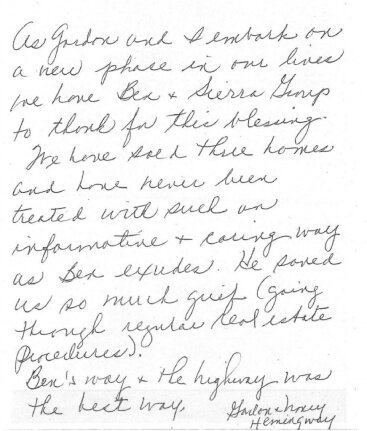 As Gordon and I embark on
a new phase in our lives
we have Ben + Sierra Group
to thank for this blessing.
We have sold three homes
and have never been
treated with such an
informative + caring way
as Ben exudes. He saved
us so much grief (going
through regular real estate
procedures).
Ben's way + the highway was
the best way.
Gordon + Nancy
Hemingway